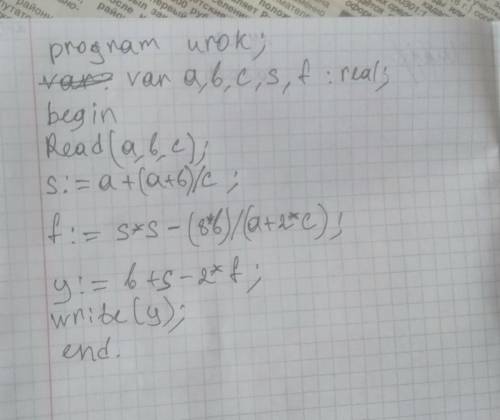 program urok;
var a,b,c,s,f : real;
begin
Read(a,b,c);
s:= a+(a+b)/c ;
f:= s*s-(8*b)/(a+2*c);
y:= b+s-2*f;
write(y);
end.